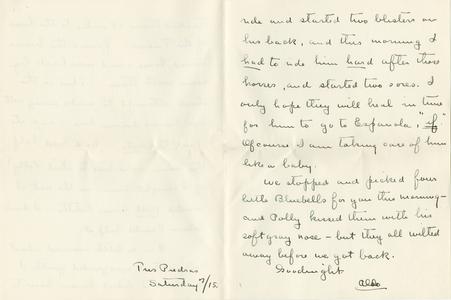 ride and started two blisters on
his back, and this morning I
had to ride him hard after those
horses, and started two sores. I
only hope they will heal in time
for him to go to Espanola, "if"
Of course I am taking care of him
like a baby.
We stopped and picked four
little Bluebells for you this morning -
and Polly kissed them with his
soft gray nose - but they all wilted
away before we got back.
Goodnight
Aldo
Tres Piedras
Saturday 7/15.